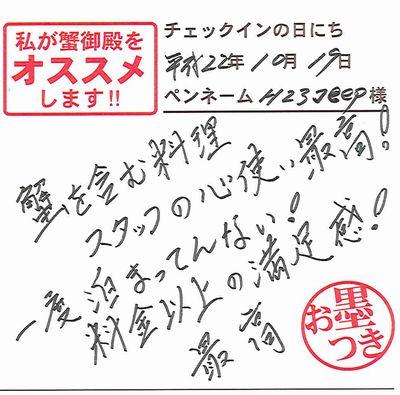 私が蟹御殿を
オススメ
します!!
チェックインの日にち
平成22年10月19日
ペンネーム H23Jeep 様
蟹を含む料理
スタッフの心使い最高!
一度泊まってんない!
料金以上の満足感!
最高
お墨つき